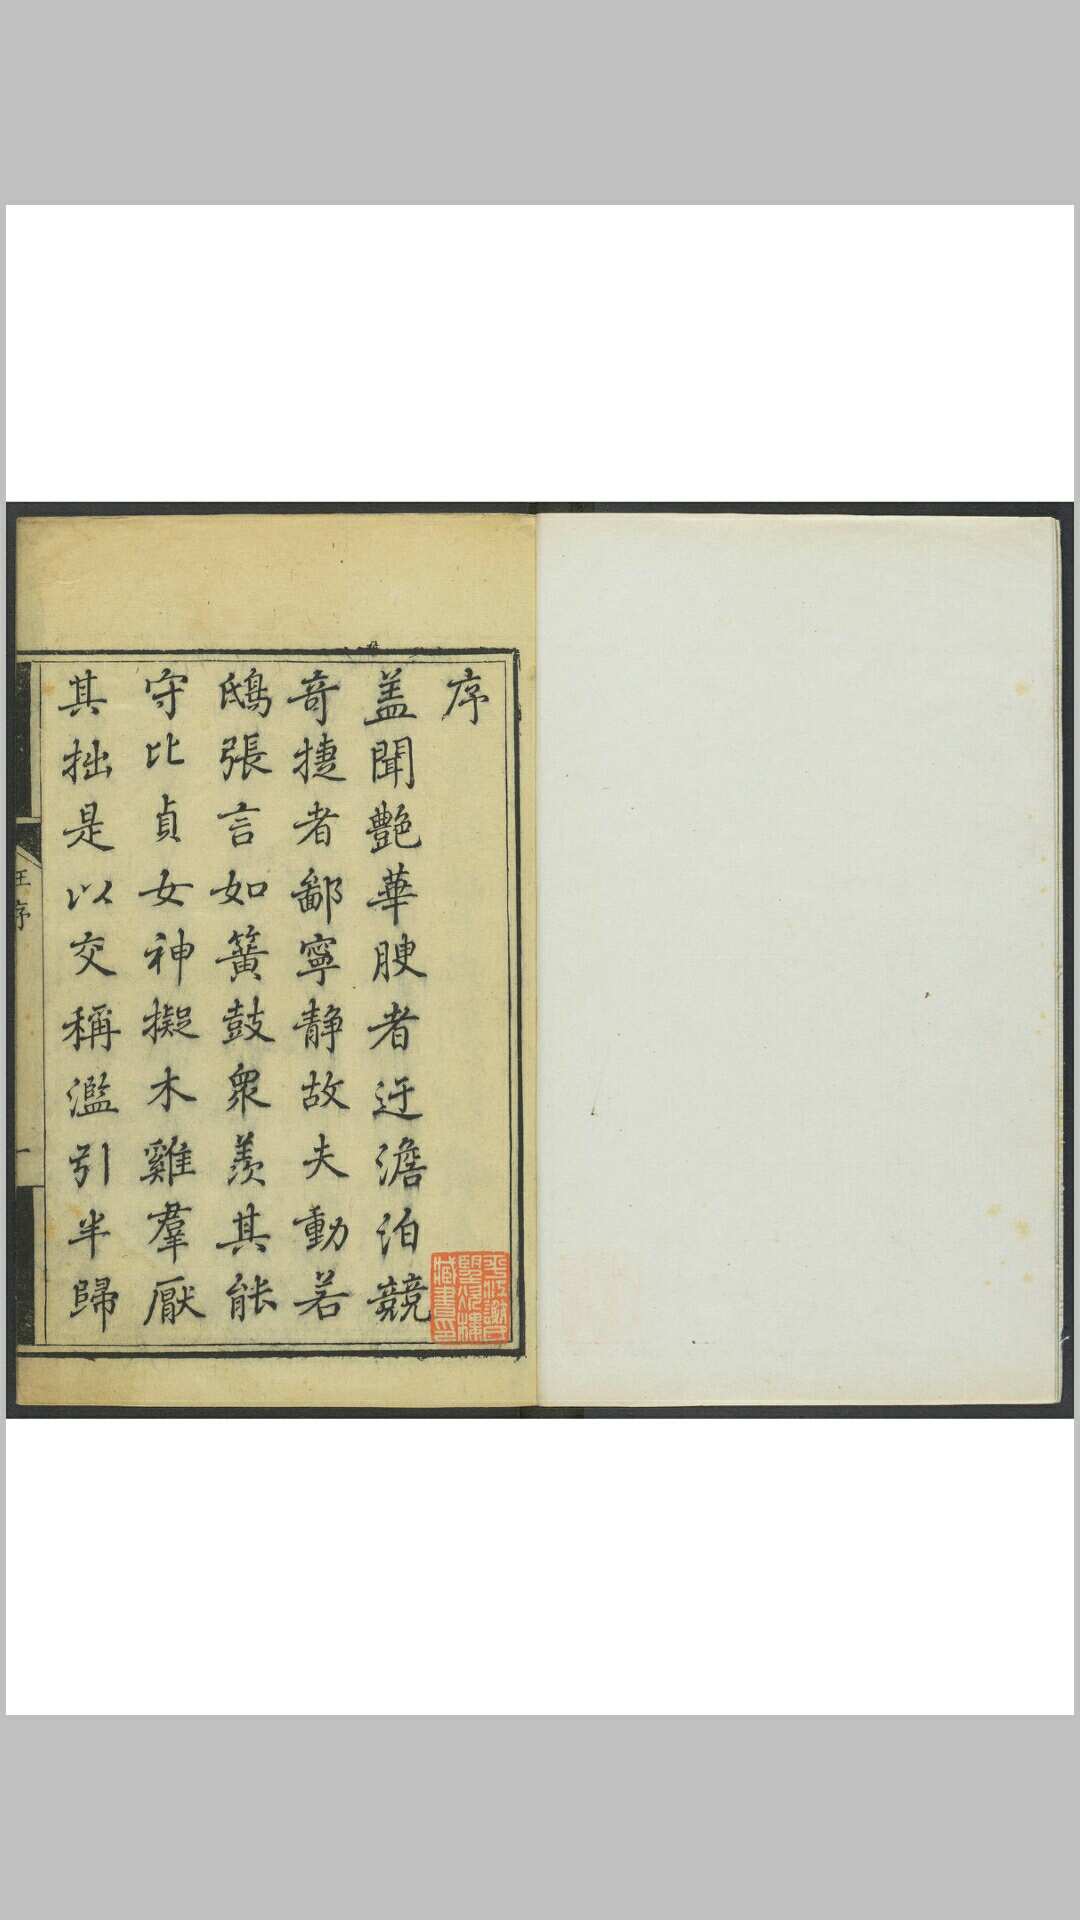 序
盖聞艷華腴者迂澹泊競
奇捷者鄙寧静故夫動若
鴟張言如簧鼓衆羨其能
守比貞女神擬木雞羣厭
其拙是以交稱濫引半歸
汪序
一
平江謝氏
望炊樓
藏書印